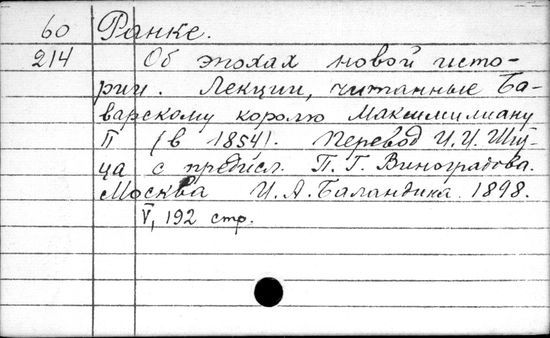 60 Ранке.
214 Об эпохах новой исто-
рии. Лекции, читанные Ба-
варскому королю Максимилиану
II (в 1854). Перевод И.И. Шиту-
ца с предисл. П.Г. Виноградова.
Москва И.А. Баландина. 1898.
V, 192 стр.